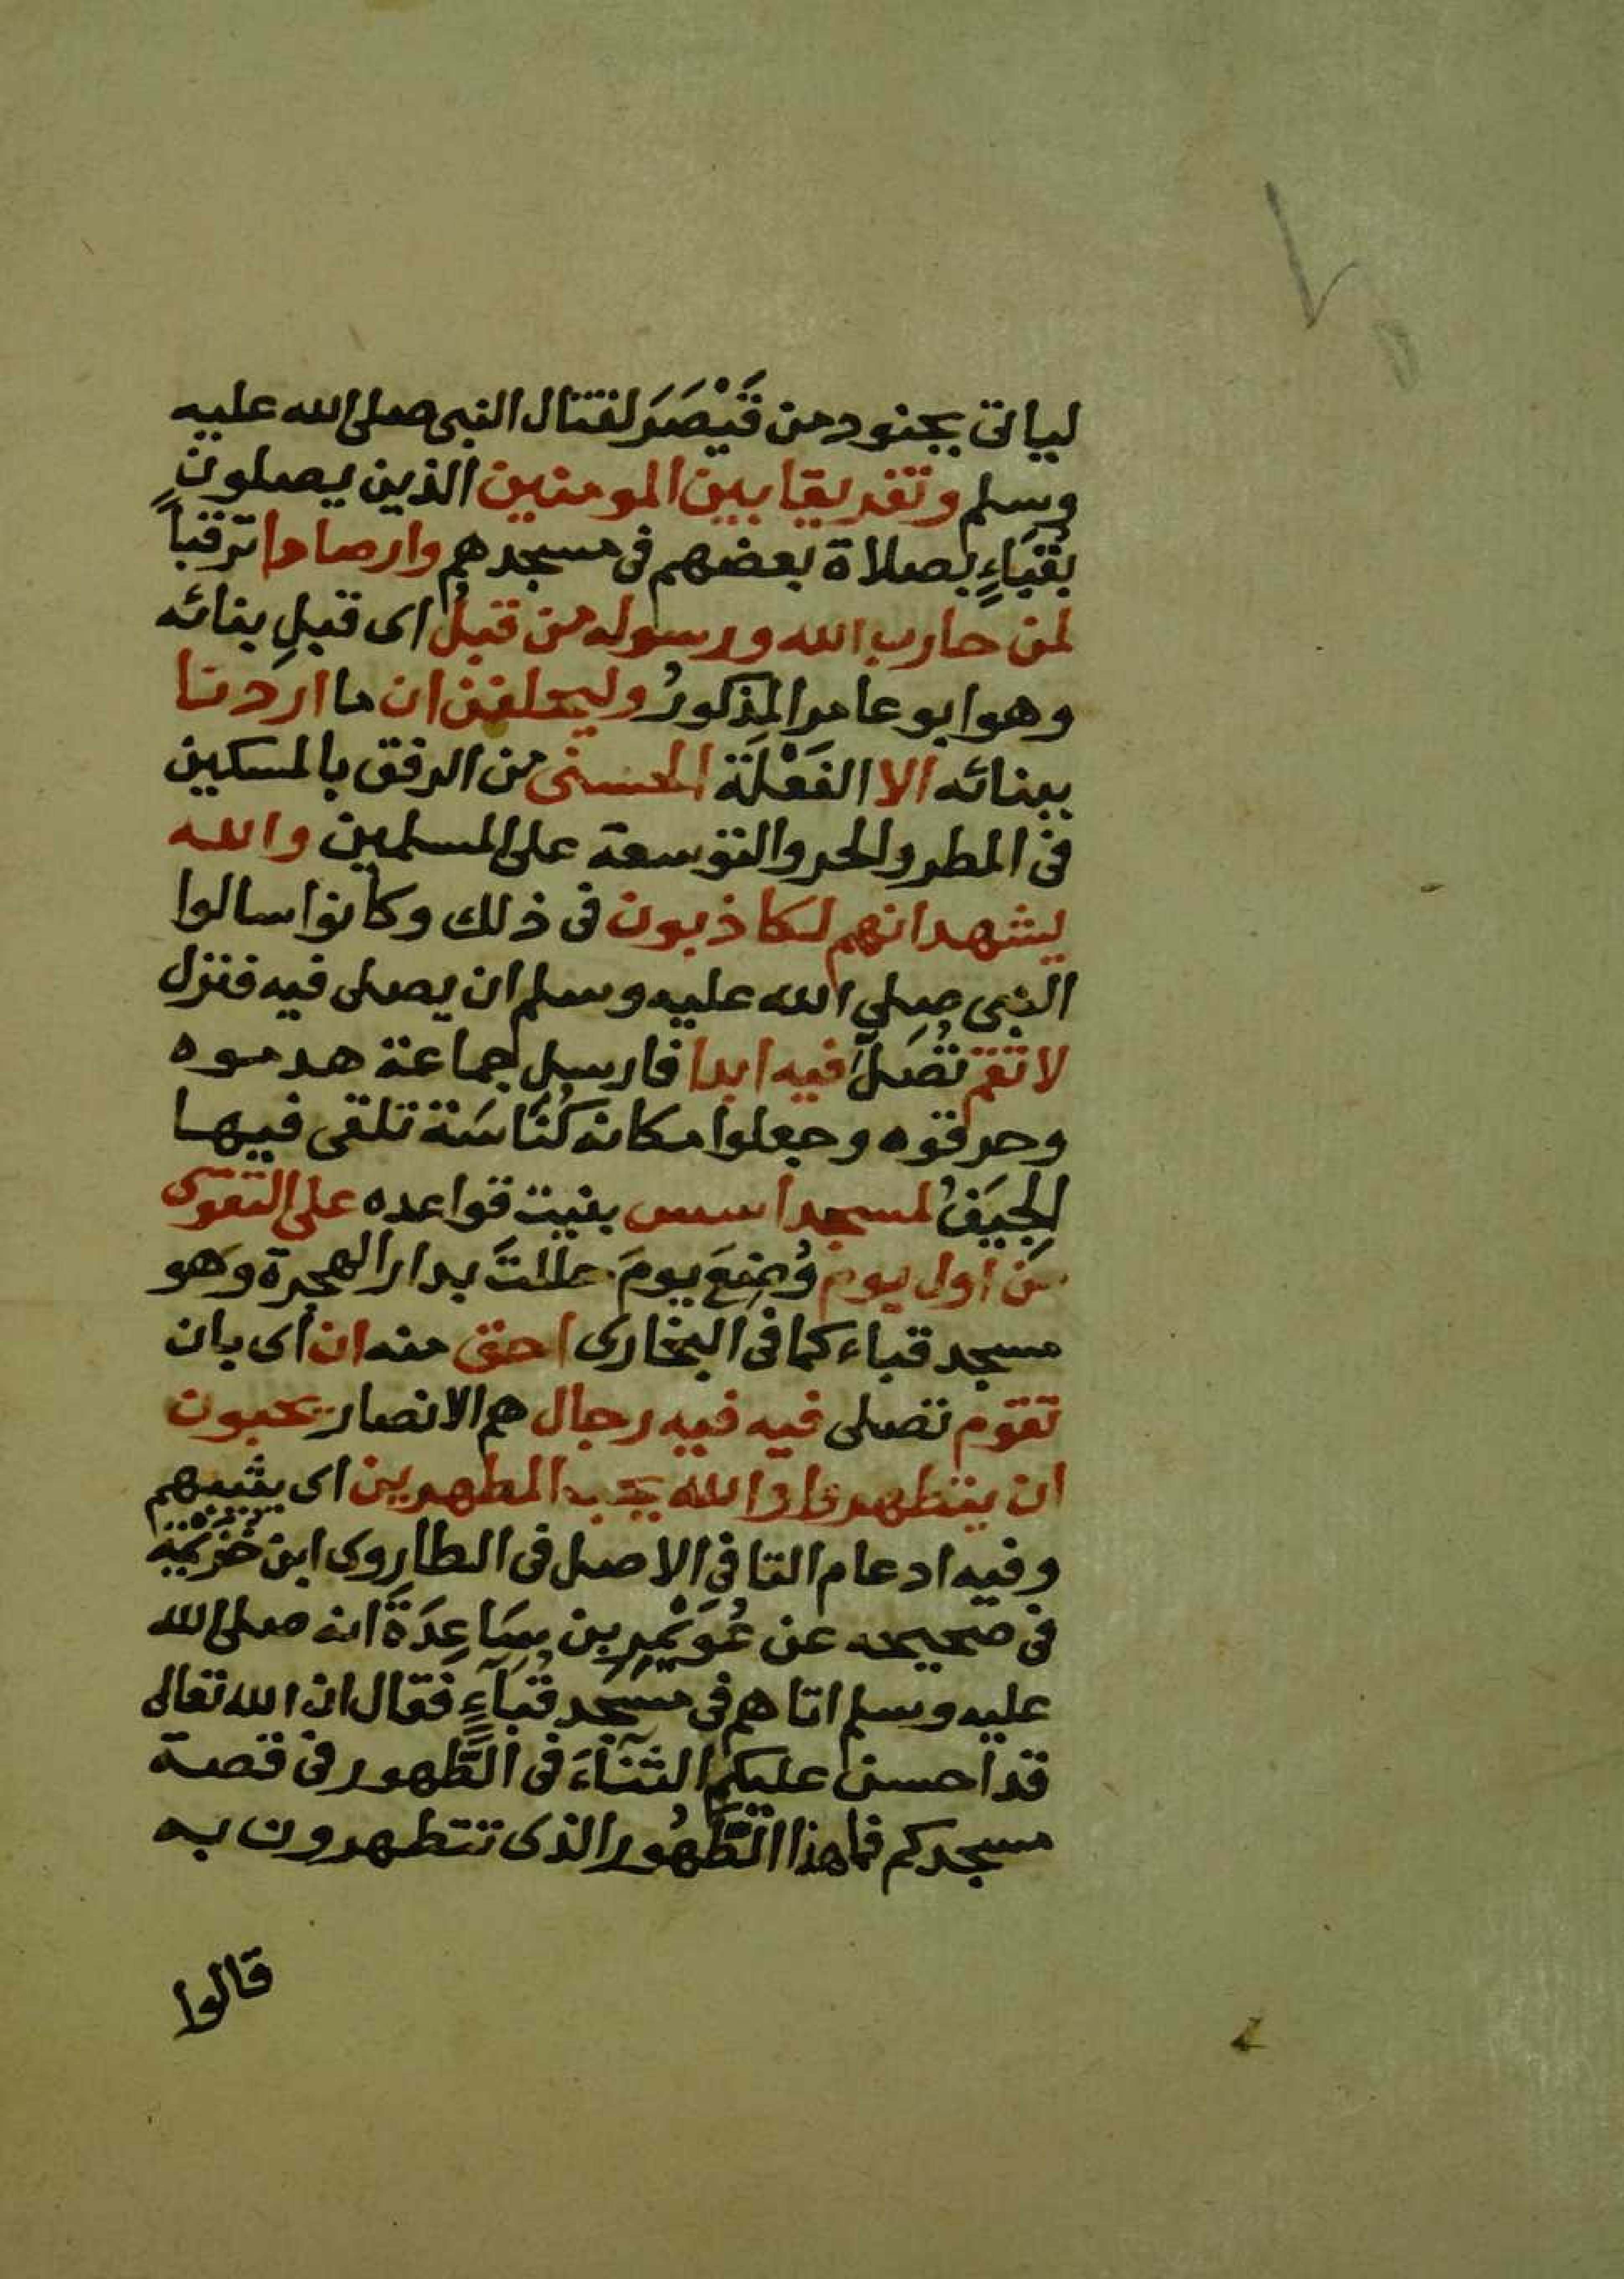 لياتى بجنود من قَيْصَرَ لقتال النبى صلى الله عليه
وسلم وتفريقا بين المومنين الذين يصلون
بقُبَاءٍ بصلاة بعضهم فى مسجدهم وارصادا ترقباً
لمن حارب الله ورسوله من قبلُ اى قبلِ بنائه
وهو ابو عامر المذكورُ وليحلفن ان ما اردنا
ببنائه الا الفَعْلَة الحسنى من الرفق بالمسكين
فى المطر والحر والتوسعة على المسلمين والله
يشهد انهم لكاذبون فى ذلك وكانوا سالوا
النبى صلى الله عليه وسلم ان يصلى فيه فنزل
لا تقم تُصَلِّ فيه ابدا فارسل جماعة هدموه
وحرقوه وجعلوا مكانه كُنَاسَة تلقى فيها
الجِيَفُ لمسجد اسس بنيت قواعده على التقوى
من اول يوم وُضِعَ يومَ حللتَ بدار الهجرة وهو
مسجد قباء كما فى البخارى احق منه ان اى بان
تقوم تصلى فيه فيه رجال هم الانصار يحبون
ان يتطهروا والله يحب المطهرين اى يثيبهم
وفيه ادعام التا فى الاصل فى الطا روى ابن خُزَيْمَة
فى صحيحه عن عُوَيْمِرِ بن سَاعِدَةَ انه صلى الله
عليه وسلم اتاهم فى مسجد قُبَاءٍ فقال ان الله تعالى
قد احسن عليكم الثناءَ فى الطَّهور فى قصة
مسجدكم فما هذا الطَّهُور الذى تتطهرون به
قالوا